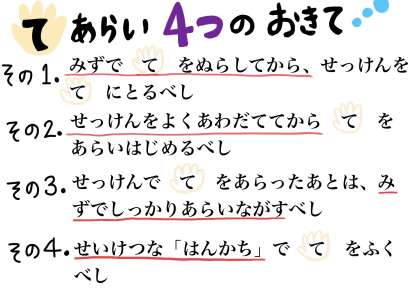 て あらい 4つ の おきて
その1. みずで て をぬらしてから、せっけんを
て にとるべし
その2. せっけんをよくあわだててから て を
あらいはじめるべし
その3. せっけんで て をあらったあとは、み
ずでしっかりあらいながすべし
その4. せいけつな「はんかち」で て をふく
べし